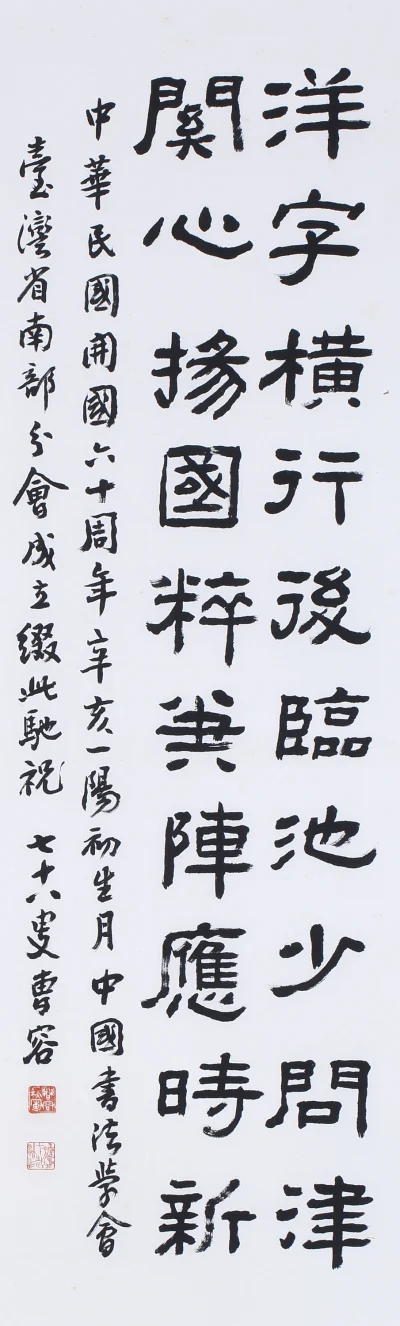 洋字橫行後臨池少問津
關心揚國粹陣應時新
中華民國開國六十周年辛亥一陽初生月中國書法學會
臺灣省南部分會成立綴此馳祝 七十八叟曹容